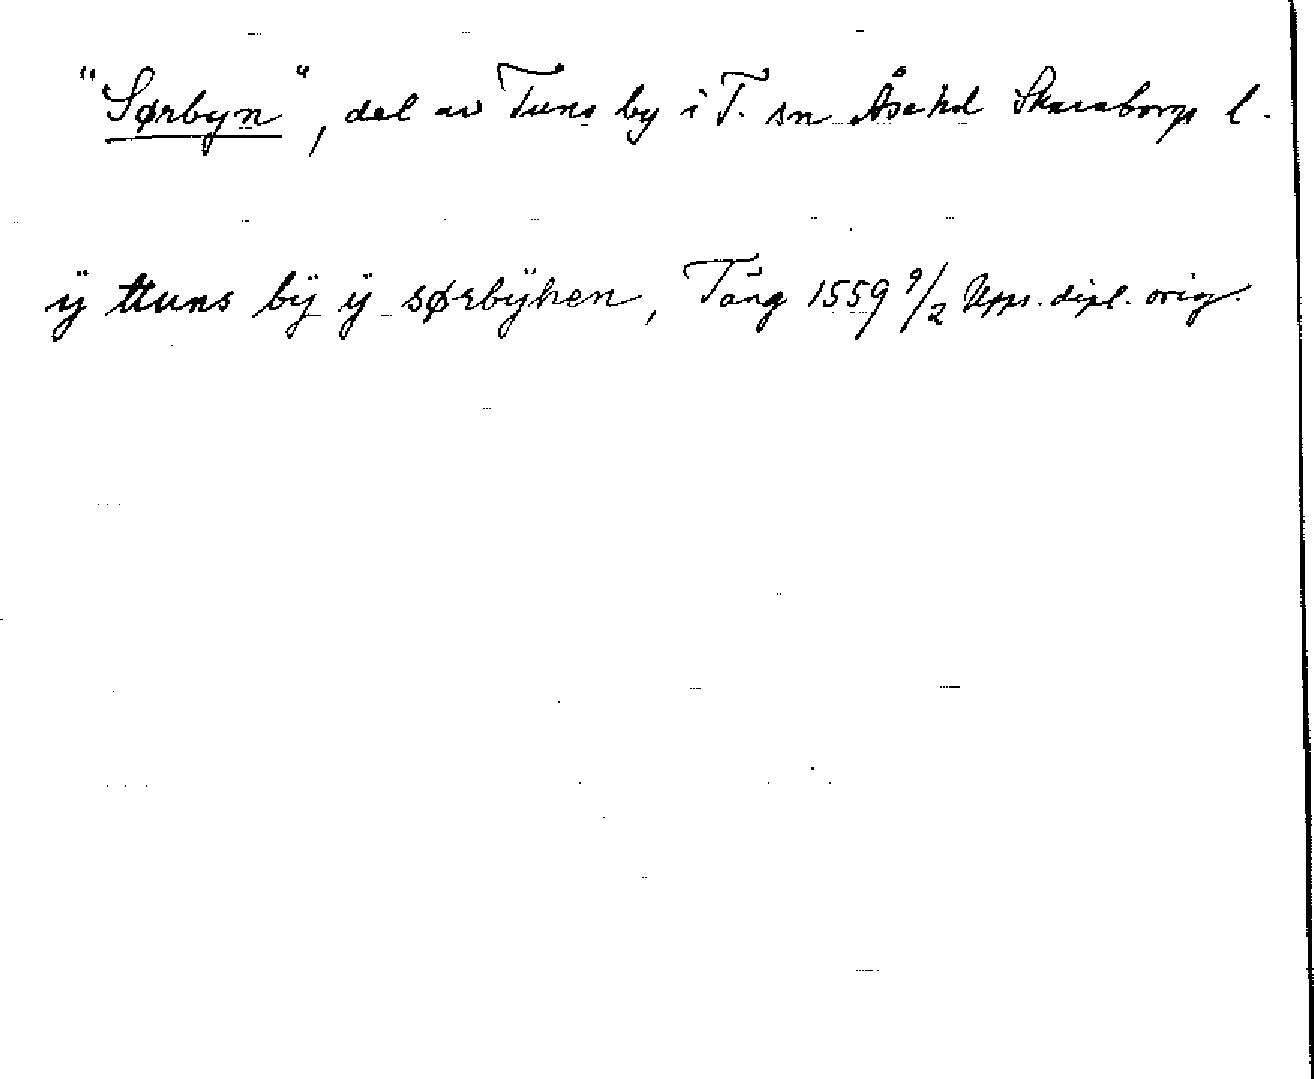 "Sørbyn", del av Tuns by i T. sn Åse hd Skaraborgs l.
ÿ ttuns bÿ ÿ sørbÿhen, Tång 1559 9/2 Upps. dipl. orig.